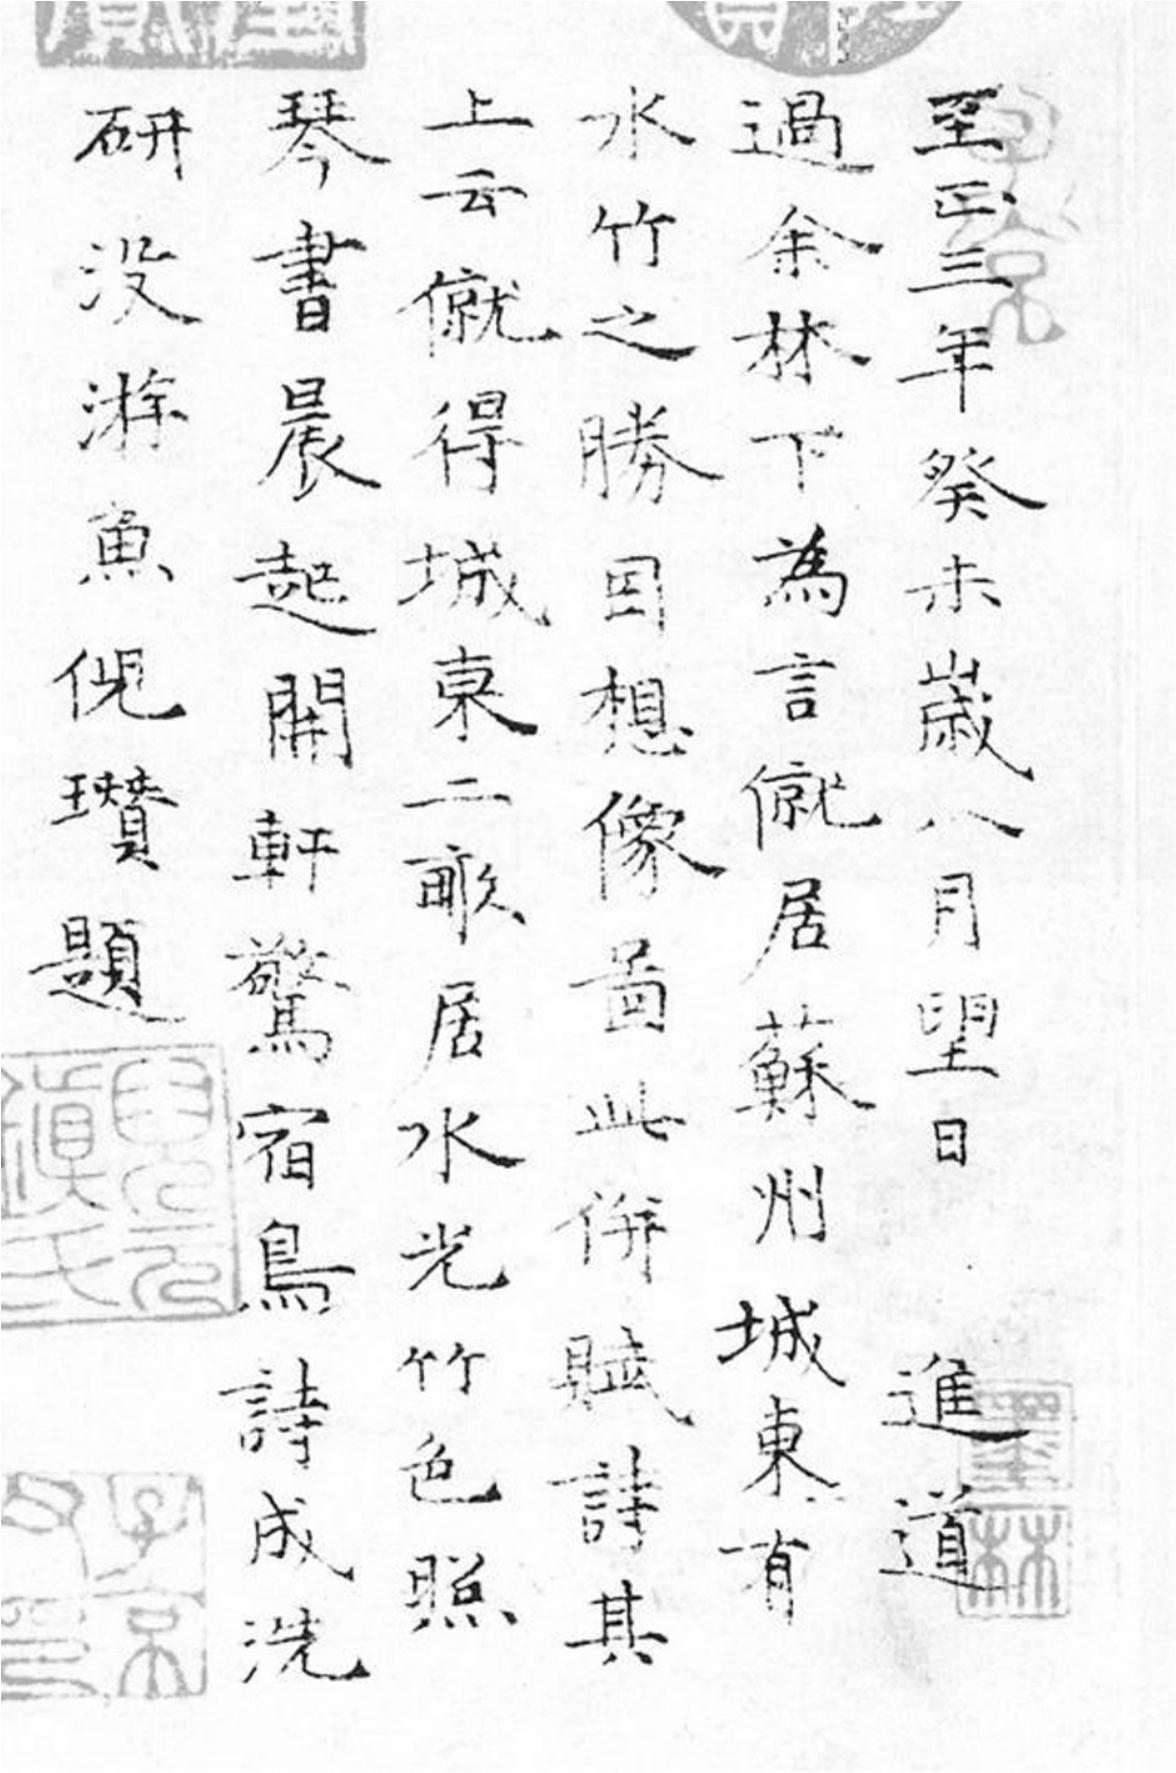 至正三年癸未歲八月望日 進道
過余林下為言僦居蘇州城東有
水竹之勝因想像畫此併賦詩其
上云僦得城東二畝居水光竹色照
琴書晨起開軒驚宿鳥詩成洗
研没游魚倪瓚題
墨林
子京